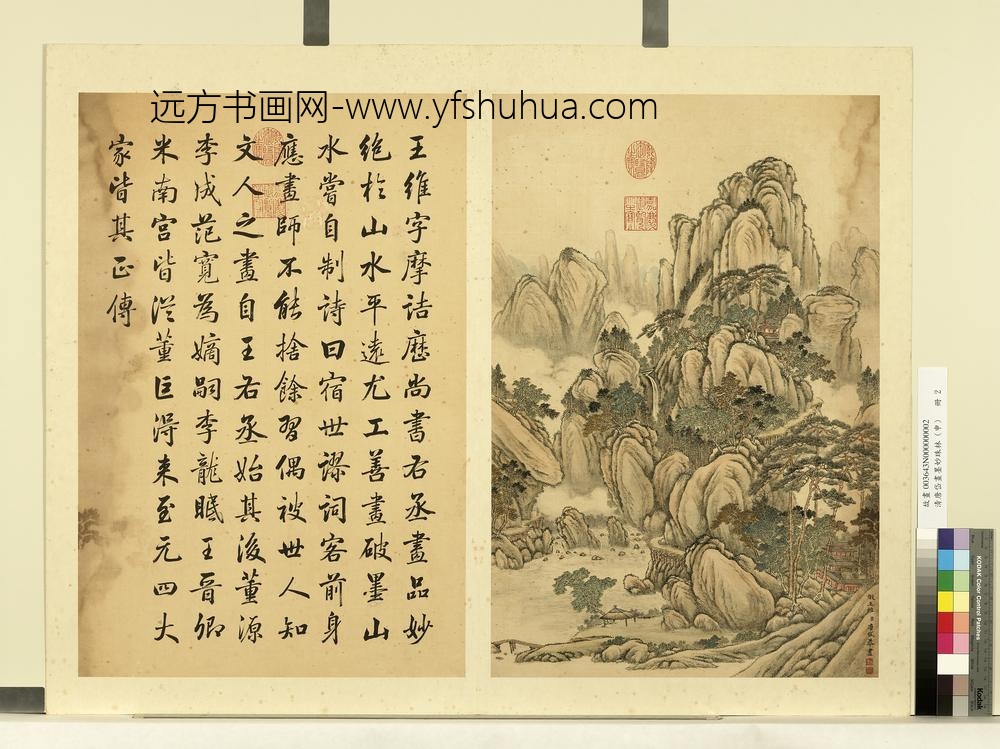 远方书画网-www.yfshuhua.com
王維字摩诘歷尚書右丞畫品妙
絶於山水平遠尤工善畫破墨山
水嘗自制诗曰宿世謬詞客前身
應畫師不能捨餘習偶被世人知
文人之畫自王右丞始其後董源
李成范寛為嫡嗣李龍眠王晋卿
米南宫皆從董巨淂来至元四大
家皆其正傳
故畫003643N000000002
清唐岱畫墨妙珠林（申） 冊 2
KODAK Color Control Patches
Kodak